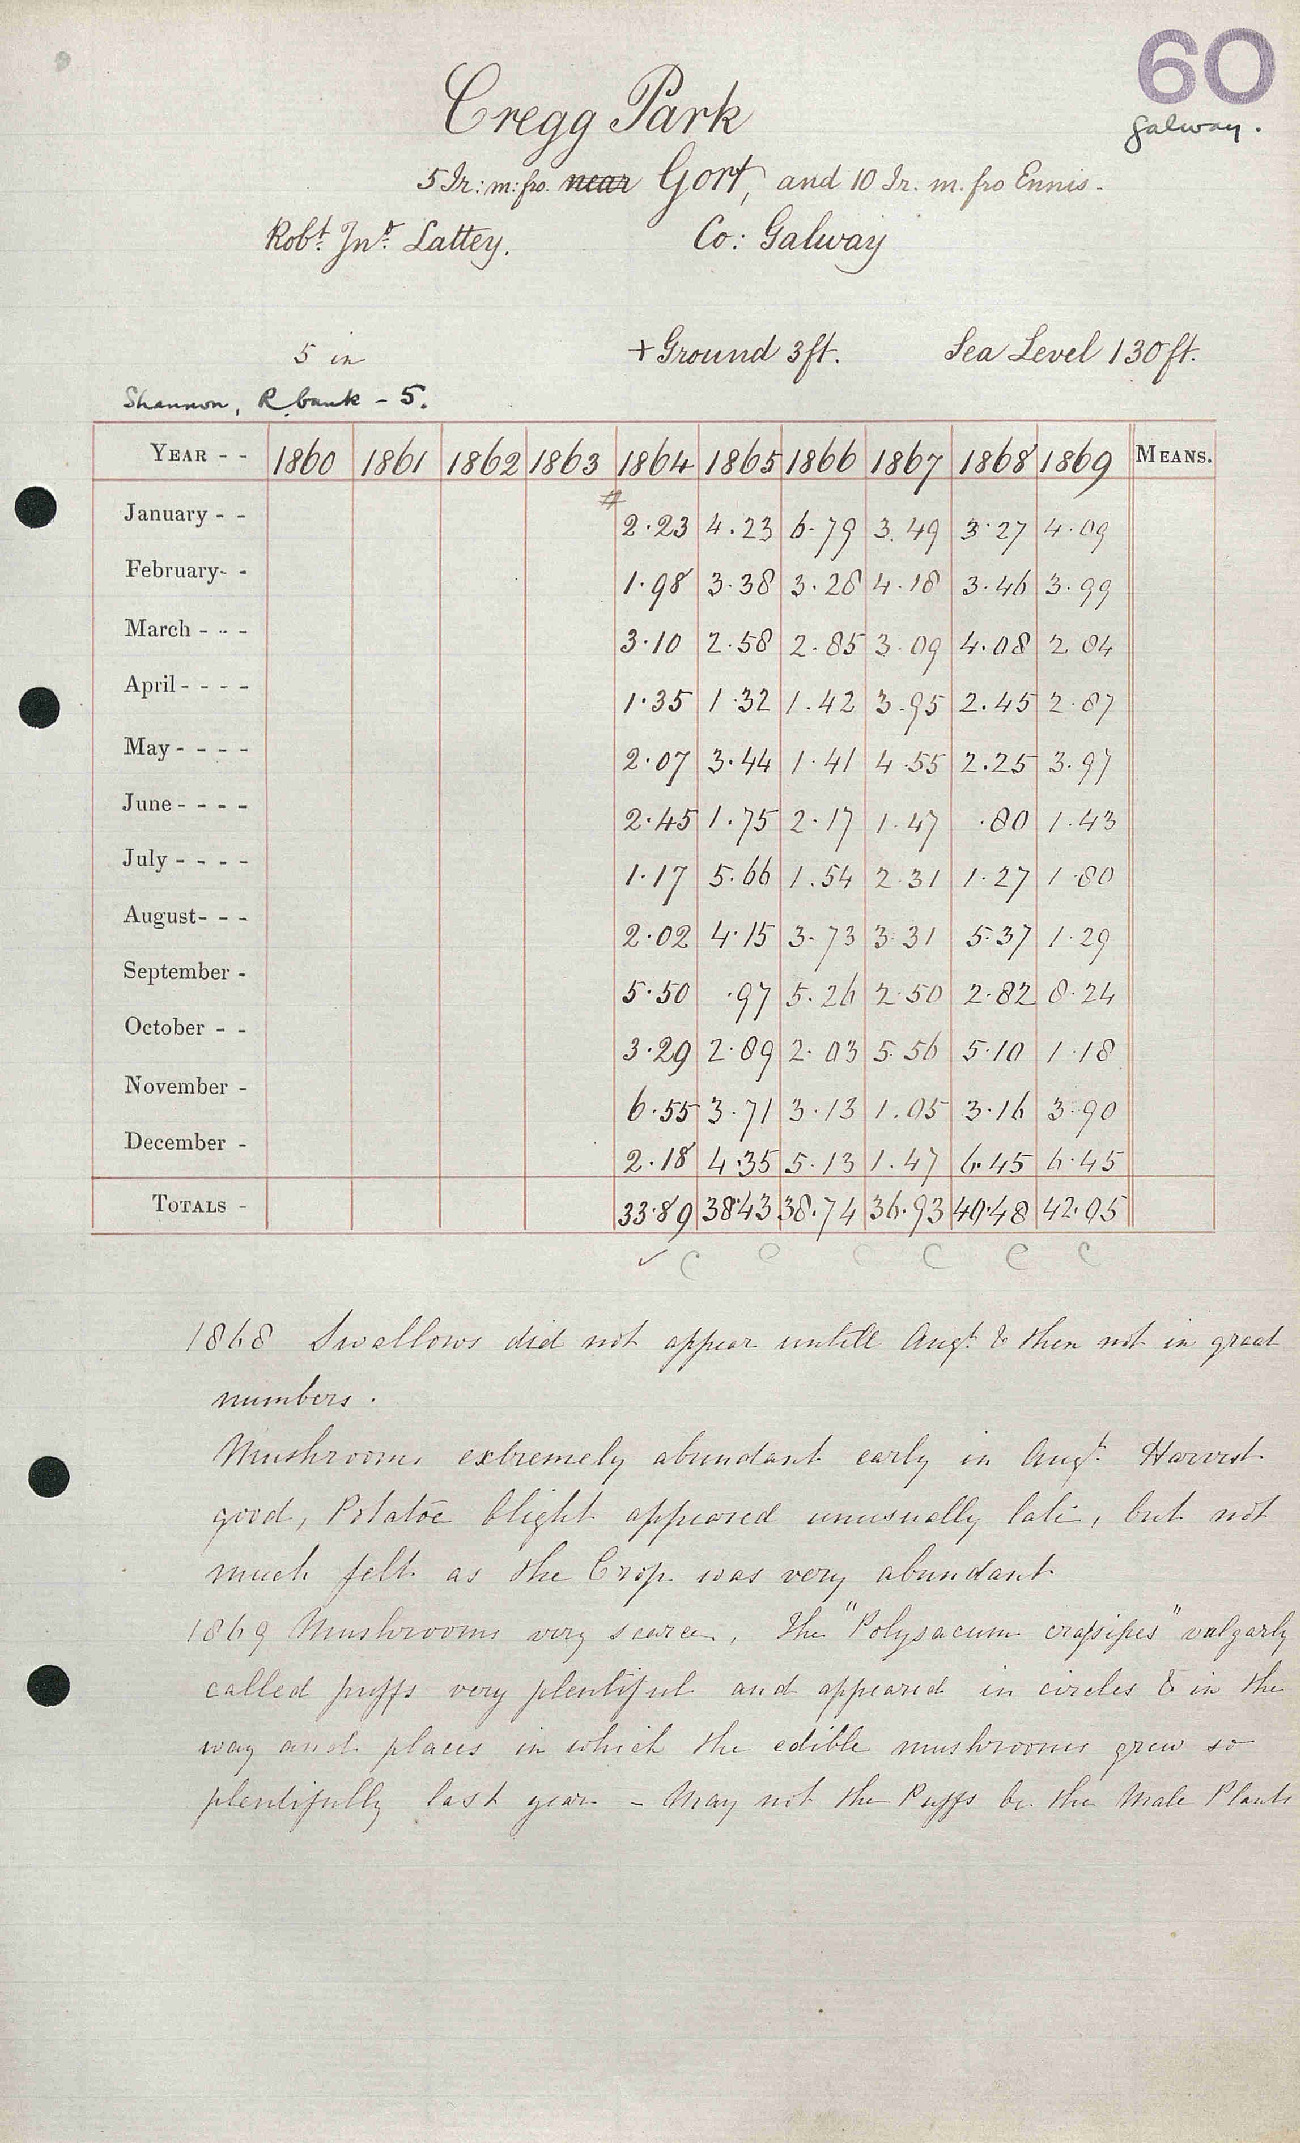 60
Galway.
Cregg Park
5 Ir: m: fro. near Gort, and 10 Ir. m. fro Ennis.
Robt. Jnt. Lattey. Co: Galway
5 in + Ground 3ft. Sea Level 130ft.
Shannon, R. bank - 5.
YEAR - - 1860 1861 1862 1863 1864 1865 1866 1867 1868 1869 MEANS.
#
January - - 2.23 4.23 6.79 3.49 3.27 4.09
February - - 1.98 3.38 3.28 4.18 3.46 3.99
March - - - 3.10 2.58 2.85 3.09 4.08 2.84
April - - - - 1.35 1.32 1.42 3.95 2.45 2.87
May - - - - 2.07 3.44 1.41 4.55 2.25 3.97
June - - - - 2.45 1.75 2.17 1.47 .80 1.43
July - - - - 1.17 5.66 1.54 2.31 1.27 1.80
August - - - 2.02 4.15 3.73 3.31 5.37 1.29
September - 5.50 .97 5.26 2.50 2.82 8.24
October - - 3.29 2.89 2.03 5.56 5.10 1.18
November - 6.55 3.71 3.13 1.05 3.16 3.90
December - 2.18 4.35 5.13 1.47 6.45 6.45
TOTALS - 33.89 38.43 38.74 36.93 40.48 42.05
✓ C C C C C C
1868 Swallows did not appear untill Augt. & then not in great
numbers.
Mushrooms extremely abundant early in Augt. Harvest
good, Potatoe blight appeared unusually late, but not
much felt as the Crop was very abundant
1869 Mushrooms very scarce, The "Polysacum crassipes" vulgarly
called puffs very plentiful and appeared in circles & in the
way and places in which the edible mushrooms grew so
plentifully last year - May not the Puffs be the Male Plants